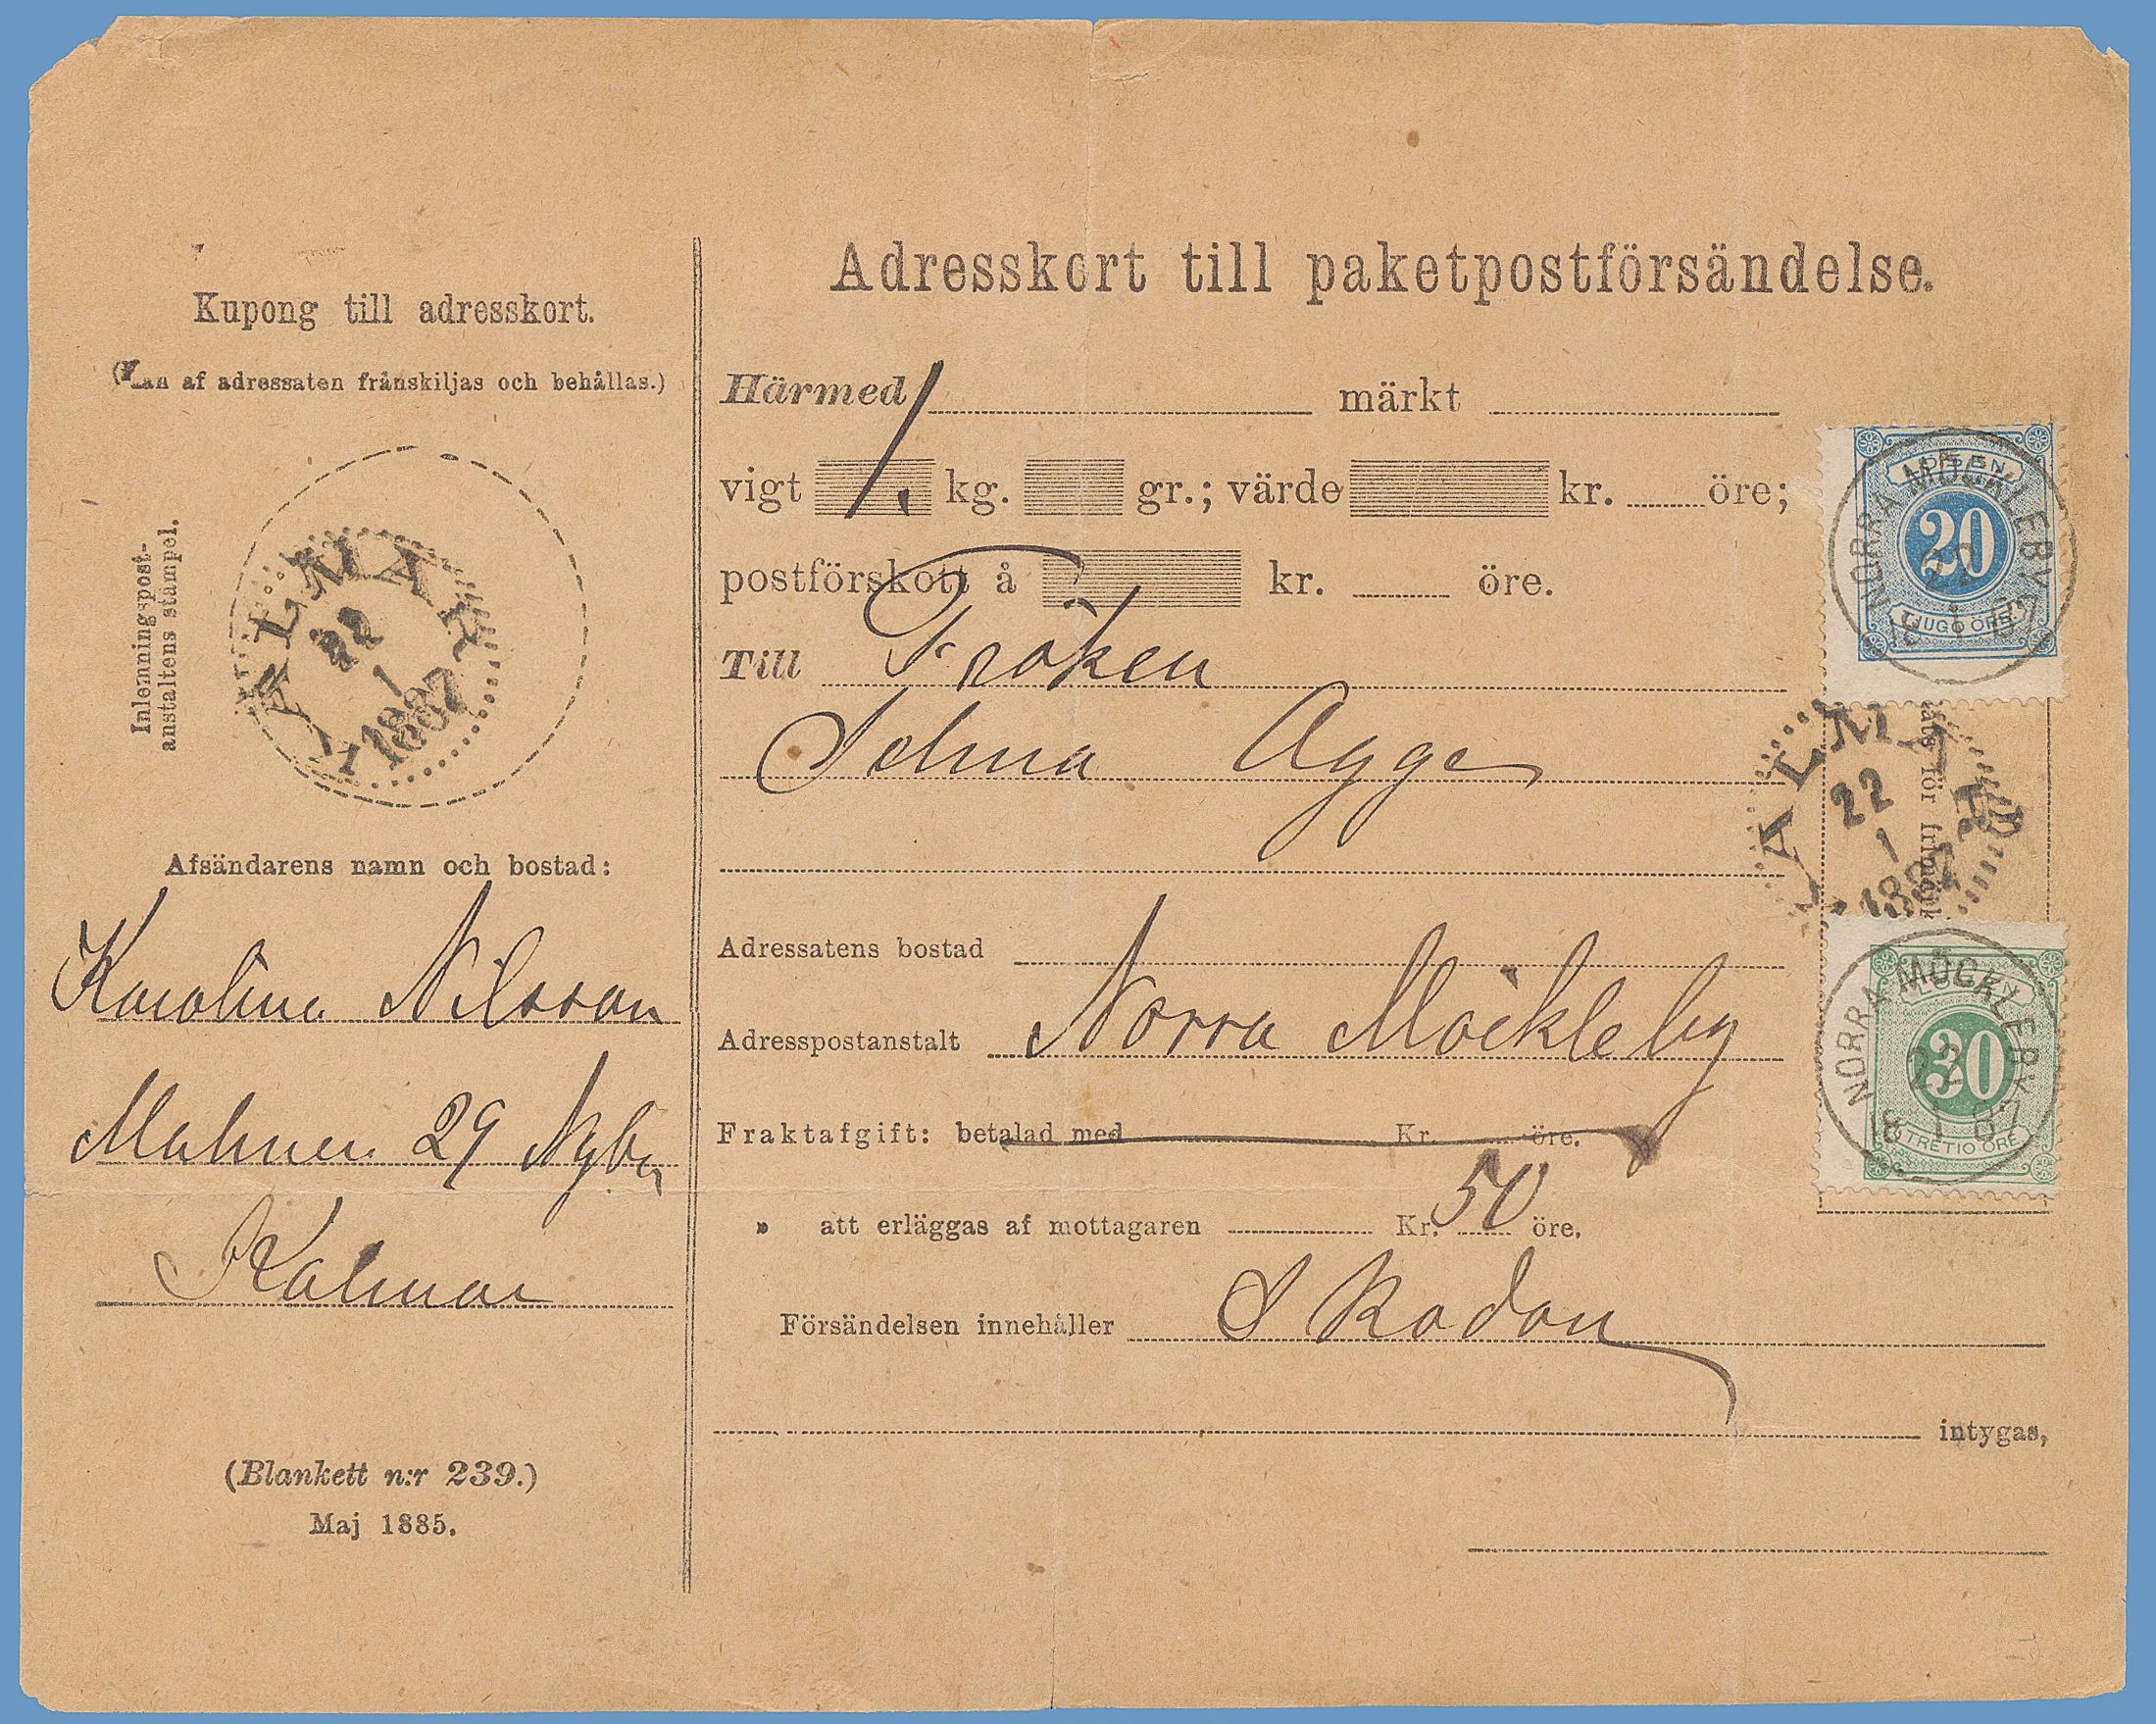 Kupong till adresskort.
(Kan af adressaten frånskiljas och behållas.)
Inlemningspost-
anstaltens stämpel.
KALMAR
22
1
1887
Afsändarens namn och bostad:
Karolina Nilsson
Malmen 29 Nyby
Kalmar
(Blankett n:r 239.)
Maj 1885.
Adresskort till paketpostförsändelse.
Härmed märkt
vigt 1. kg. gr.; värde kr. öre;
postförskott å kr. öre.
Till Fröken
Selma Agge
Adressatens bostad
Adresspostanstalt Norra Möckleby
Fraktafgift: betalad med Kr. öre.
» att erläggas af mottagaren Kr. 50 öre.
Försändelsen innehåller Skodon
intygas,
LÖSEN
20
TJUGO ÖRE
NORRA MÖCKLEBY
22
18 1 87
KALMAR
22
1
1887
plats för frimärk
LÖSEN
30
TRETIO ÖRE
NORRA MÖCKLEBY
22
18 1 87